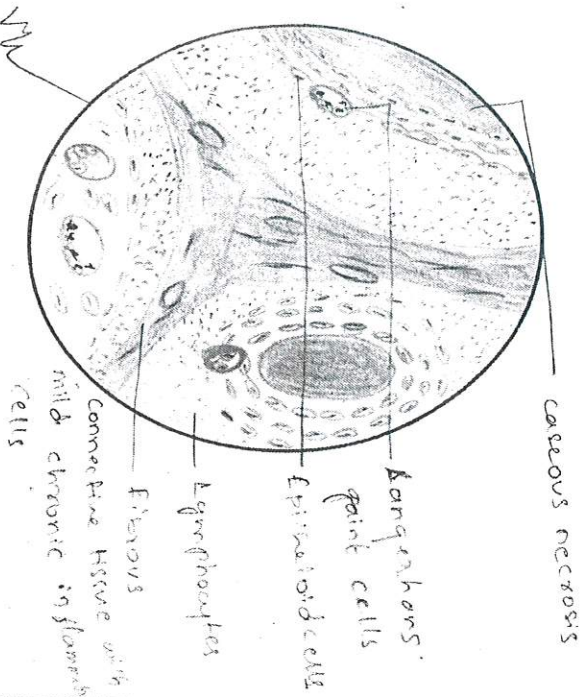 caseous necrosis
Langenhans'
gaint cells
Epitheloid cells
Lymphocytes
Fibrous
connective tissue with
mild chronic inflammat
cells